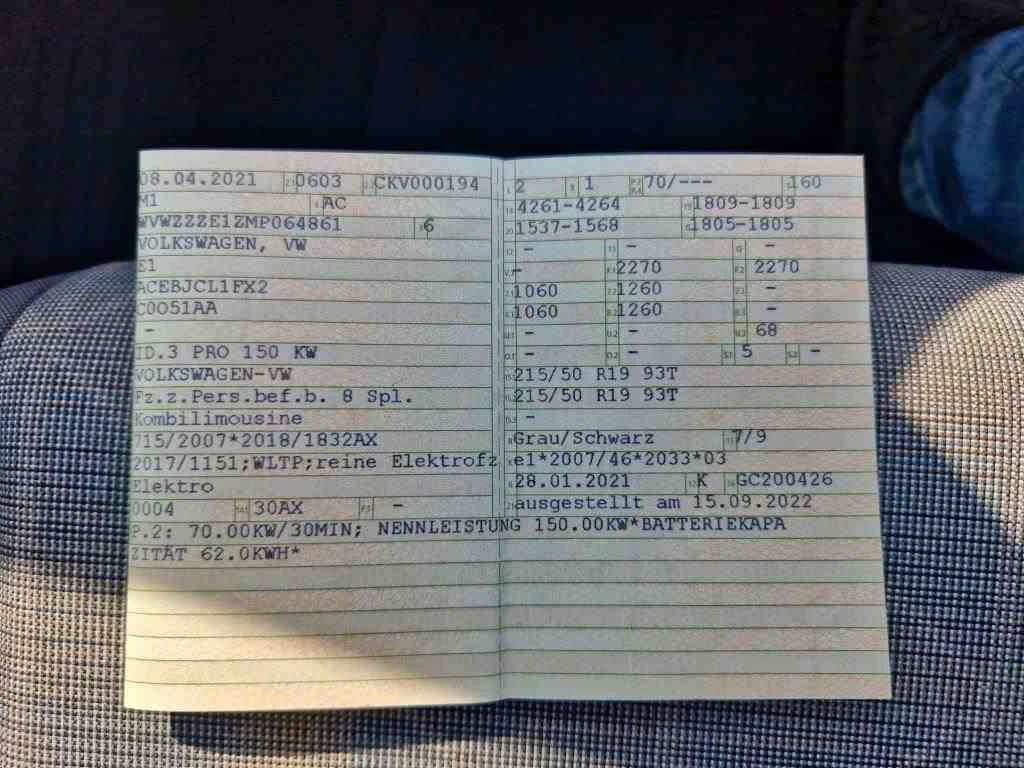 08.04.2021 0603 CKV000194
M1 AC
WVWZZZE1ZMP064861 6
VOLKSWAGEN, VW
E1
ACEBJCL1FX2
C0051AA
-
ID.3 PRO 150 KW
VOLKSWAGEN-VW
Fz.z.Pers.bef.b. 8 Spl.
Kombilimousine
715/2007*2018/1832AX
2017/1151;WLTP;reine Elektrofz
Elektro
0004 30AX -
P.2: 70.00KW/30MIN; NENNLEISTUNG 150.00KW*BATTERIEKAPA
ZITÄT 62.0KWH*
2 1 70/--- 160
4261-4264 1809-1809
1537-1568 1805-1805
- - -
- 2270 2270
1060 1260 -
1060 1260 -
- - 68
- - 5 -
215/50 R19 93T
215/50 R19 93T
-
Grau/Schwarz 7/9
e1*2007/46*2033*03
28.01.2021 K GC200426
ausgestellt am 15.09.2022